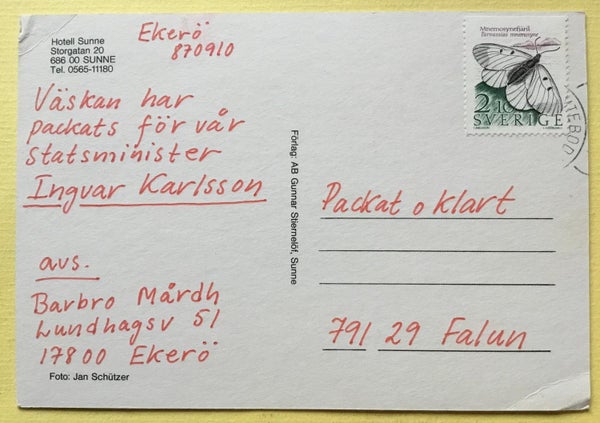 Hotell Sunne
Storgatan 20
686 00 SUNNE
Tel. 0565-11180
Ekerö
870910
Väskan har
packats för vår
statsminister
Ingvar Karlsson
avs.
Barbro Mårdh
Lundhagsv 51
17800 Ekerö
Foto: Jan Schützer
Förlag: AB Gunnar Stiernelöf, Sunne
Mnemosynefjäril
Parnassius mnemosyne
2.10
SVERIGE
Packat o klart
791 29 Falun